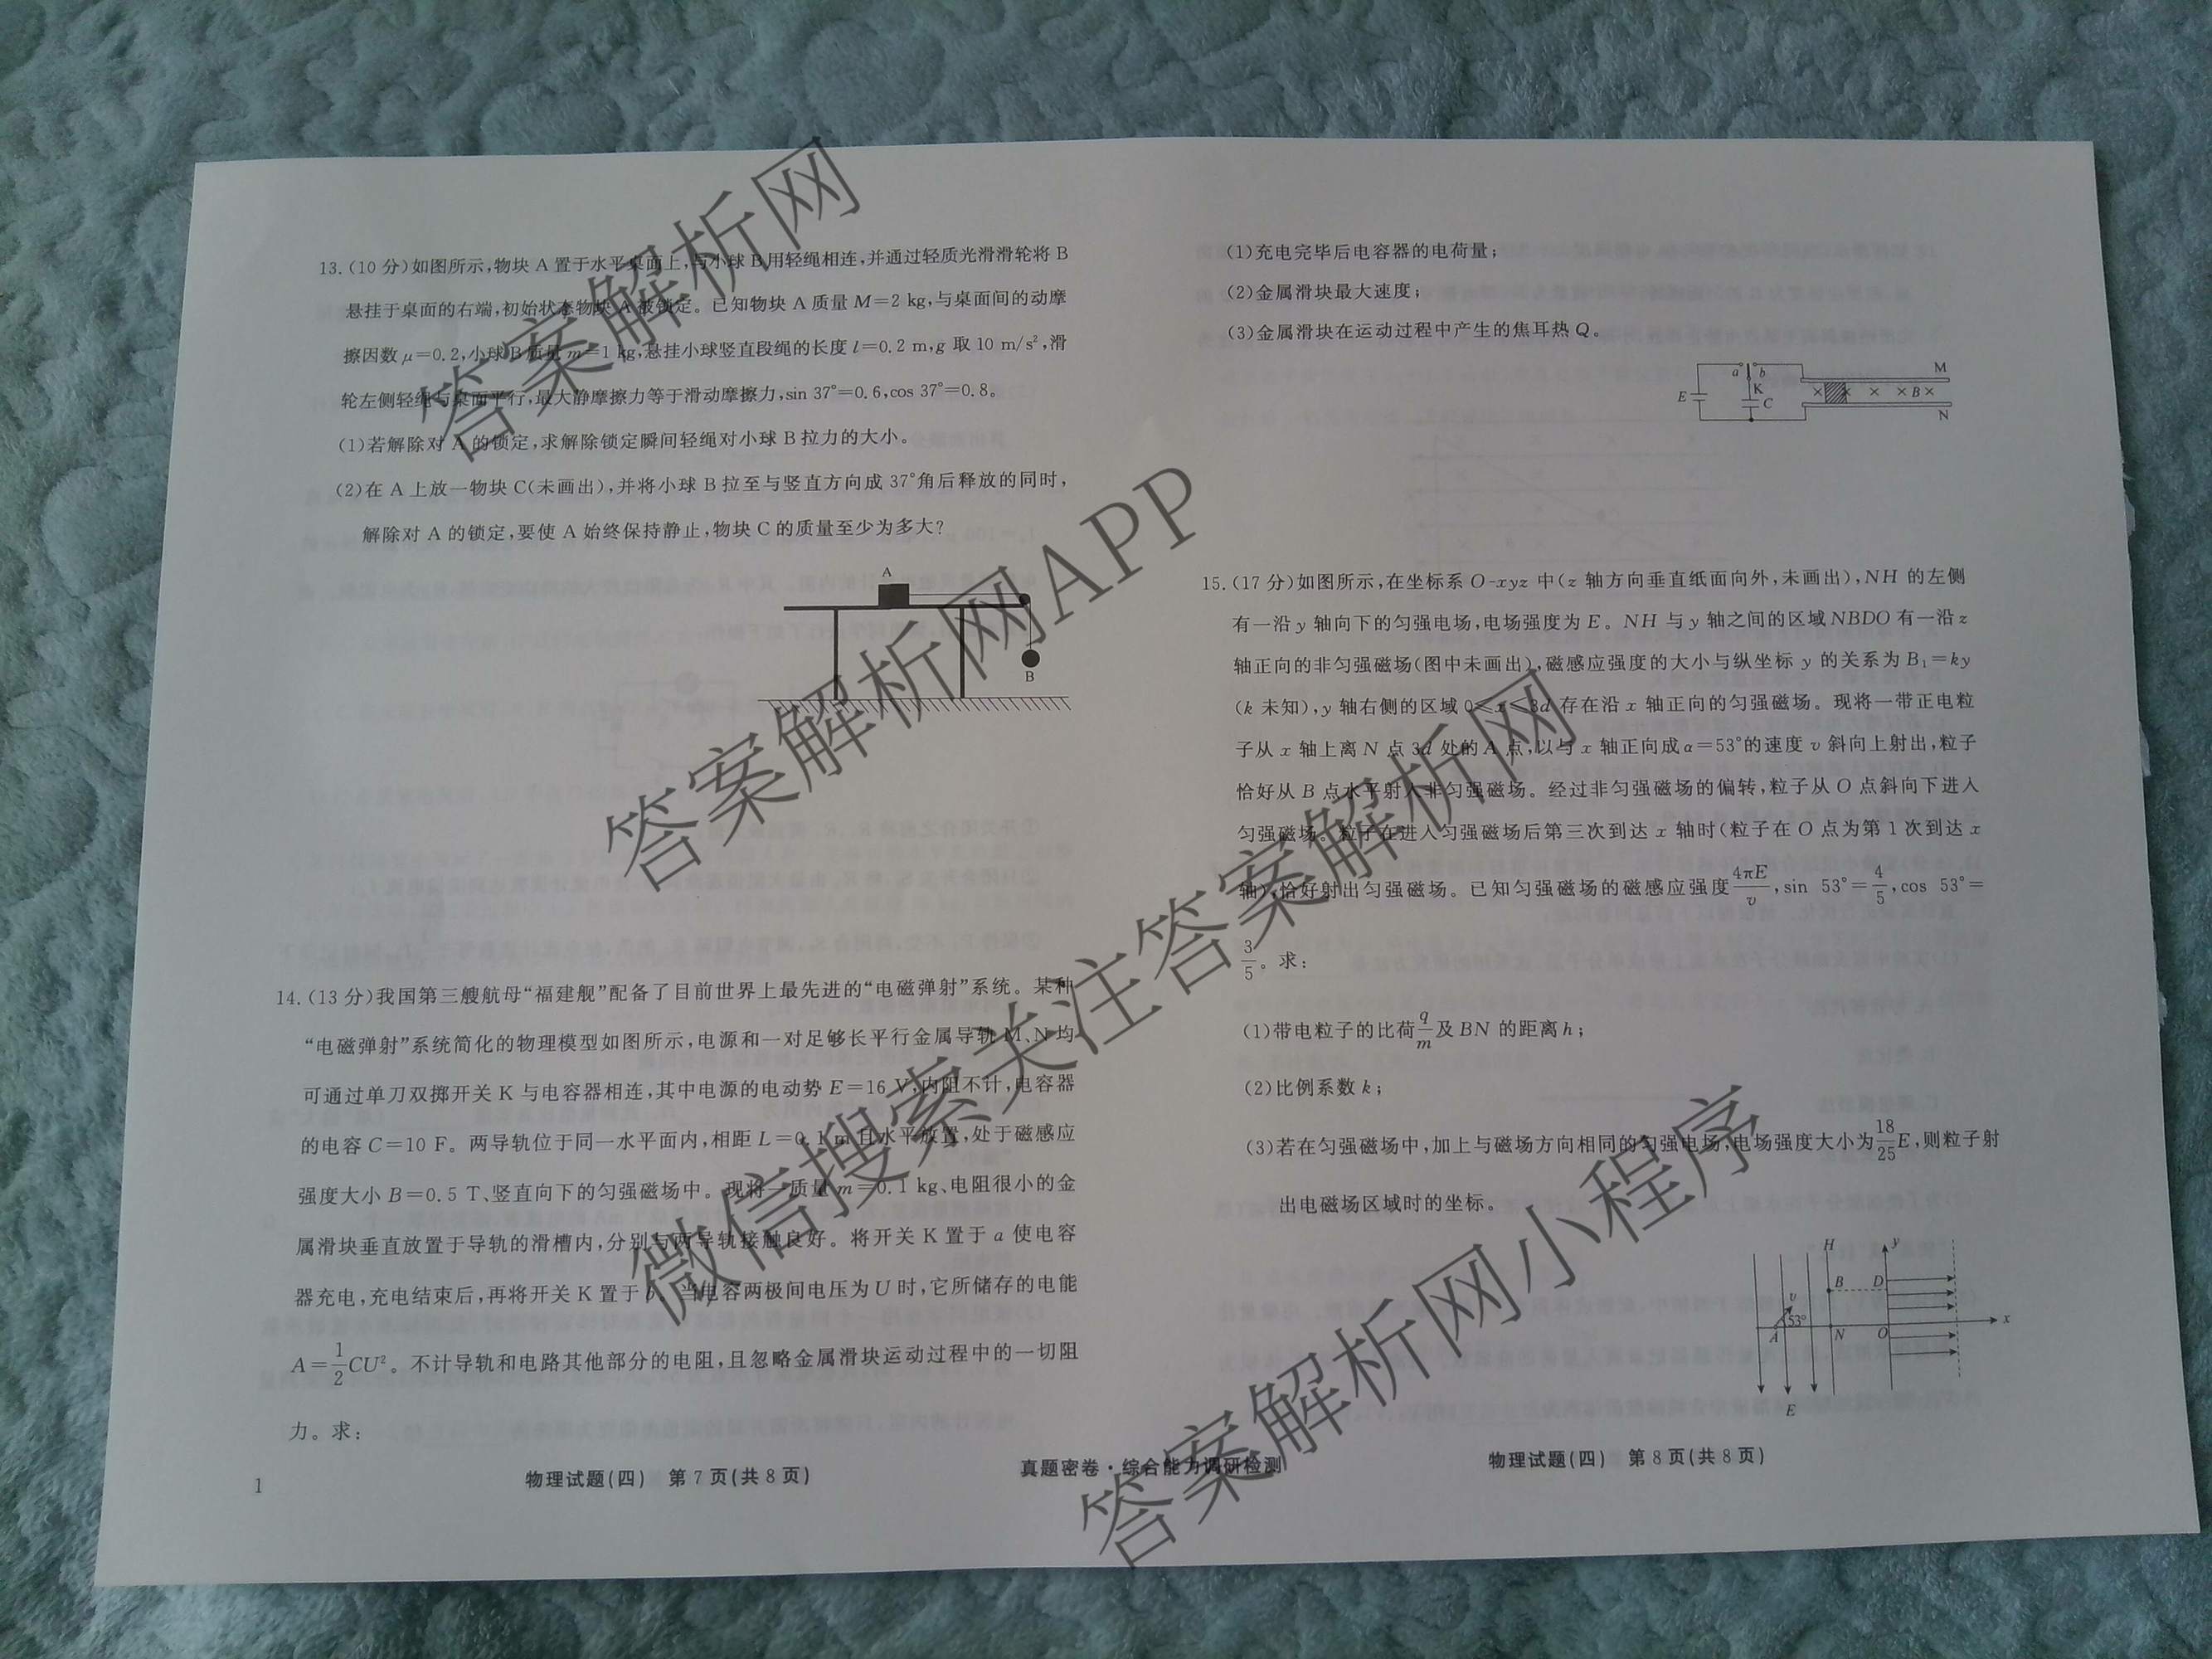 13.(10 分)如图所示,物块 A 置于水平桌面上,与小球 B 用轻绳相连,并通过轻质光滑滑轮将 B
悬挂于桌面的右端,初始状态物块 A 被锁定。已知物块 A 质量 M=2 kg,与桌面间的动摩
擦因数 μ=0.2,小球 B 质量 m=1 kg,悬挂小球竖直段绳的长度 l=0.2 m,g 取 10 m/s²,滑
轮左侧轻绳与桌面平行,最大静摩擦力等于滑动摩擦力,sin 37°=0.6,cos 37°=0.8。
(1)若解除对 A 的锁定,求解除锁定瞬间轻绳对小球 B 拉力的大小。
(2)在 A 上放一物块 C(未画出),并将小球 B 拉至与竖直方向成 37°角后释放的同时,
解除对 A 的锁定,要使 A 始终保持静止,物块 C 的质量至少为多大?
A
B
14.(13 分)我国第三艘航母“福建舰”配备了目前世界上最先进的“电磁弹射”系统。某种
“电磁弹射”系统简化的物理模型如图所示,电源和一对足够长平行金属导轨 M、N 均
可通过单刀双掷开关 K 与电容器相连,其中电源的电动势 E=16 V,内阻不计,电容器
的电容 C=10 F。两导轨位于同一水平面内,相距 L=0.1 m 且水平放置,处于磁感应
强度大小 B=0.5 T、竖直向下的匀强磁场中。现将一质量 m=0.1 kg、电阻很小的金
属滑块垂直放置于导轨的滑槽内,分别与两导轨接触良好。将开关 K 置于 a 使电容
器充电,充电结束后,再将开关 K 置于 b。当电容两极间电压为 U 时,它所储存的电能
A=1/2CU²。不计导轨和电路其他部分的电阻,且忽略金属滑块运动过程中的一切阻
力。求:
1
物理试题(四) 第 7 页(共 8 页)
(1)充电完毕后电容器的电荷量;
(2)金属滑块最大速度;
(3)金属滑块在运动过程中产生的焦耳热 Q。
E a b K C M B N
15.(17 分)如图所示,在坐标系 O-xyz 中(z 轴方向垂直纸面向外,未画出),NH 的左侧
有一沿 y 轴向下的匀强电场,电场强度为 E。NH 与 y 轴之间的区域 NBDO 有一沿 z
轴正向的非匀强磁场(图中未画出),磁感应强度的大小与纵坐标 y 的关系为 B₁=ky
(k 未知),y 轴右侧的区域 0≤x≤3d 存在沿 x 轴正向的匀强磁场。现将一带正电粒
子从 x 轴上离 N 点 3d 处的 A 点,以与 x 轴正向成 α=53°的速度 v 斜向上射出,粒子
恰好从 B 点水平射入非匀强磁场。经过非匀强磁场的偏转,粒子从 O 点斜向下进入
匀强磁场。粒子在进入匀强磁场后第三次到达 x 轴时(粒子在 O 点为第 1 次到达 x
轴),恰好射出匀强磁场。已知匀强磁场的磁感应强度4πE/v,sin 53°=4/5,cos 53°=
3/5。求:
(1)带电粒子的比荷q/m及 BN 的距离 h;
(2)比例系数 k;
(3)若在匀强磁场中,加上与磁场方向相同的匀强电场,电场强度大小为18/25E,则粒子射
出电磁场区域时的坐标。
H y
B D
v
53°
A N O x
E
真题密卷·综合能力调研检测
物理试题(四) 第 8 页(共 8 页)
答案解析网
答案解析网APP
微信搜索关注答案解析网
答案解析网小程序